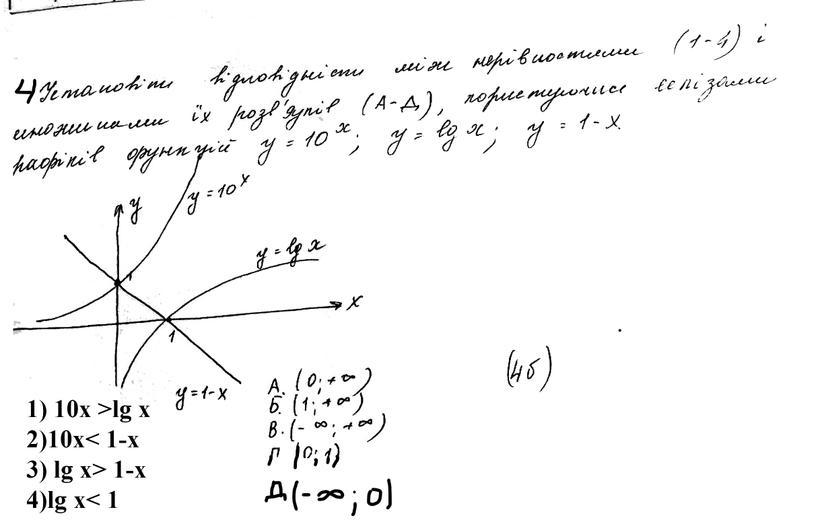 4 Установіть відповідність між нерівностями (1-4) і
множинами їх розв'язків (А-Д), користуючись ескізами
графіків функцій y = 10ˣ; y = lg x; y = 1-x.
y
y = 10ˣ
1
y = lg x
x
1
y = 1-x
(4б)
1) 10x >lg x
2)10x< 1-x
3) lg x> 1-x
4)lg x< 1
А. (0; +∞)
Б. (1; +∞)
В. (-∞; +∞)
Г (0; 1)
Д (-∞; 0)